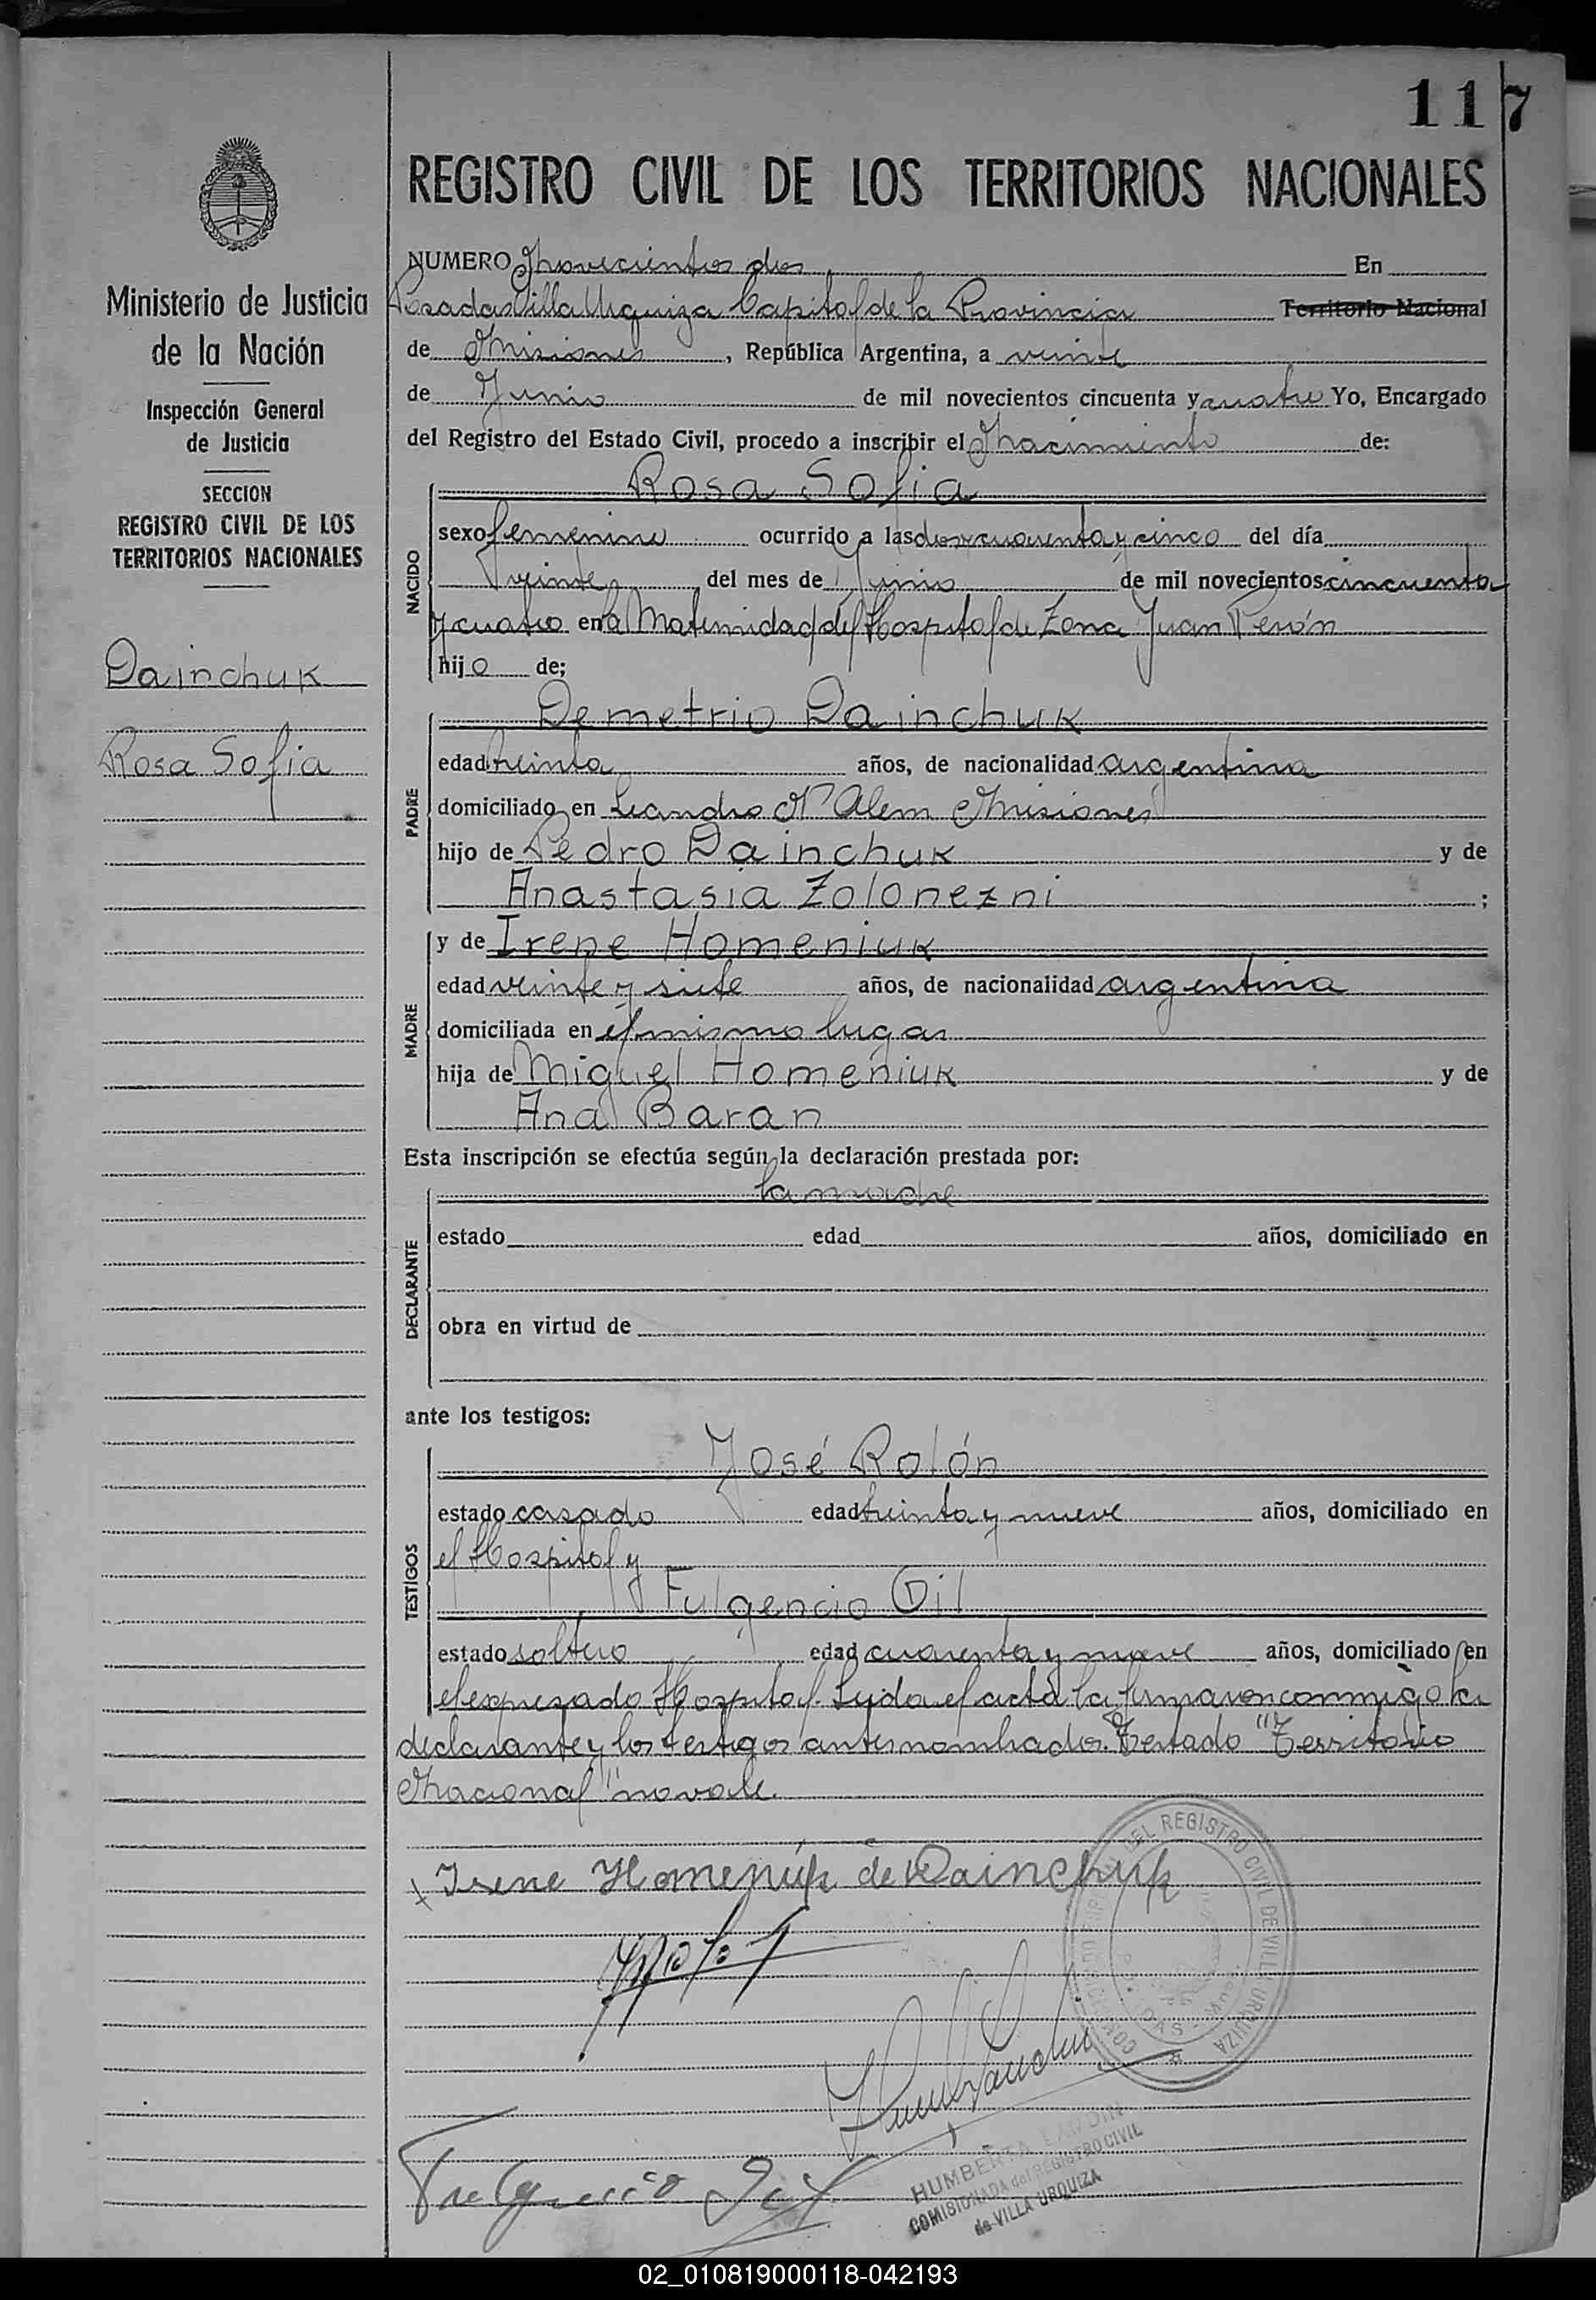 117
REGISTRO CIVIL DE LOS TERRITORIOS NACIONALES
Ministerio de Justicia
de la Nación
Inspección General
de Justicia
SECCION
REGISTRO CIVIL DE LOS
TERRITORIOS NACIONALES
Dainchuk
Rosa Sofia
NUMERO Novecientos dos En
Posadas Villa Urquiza Capital de la Provincia Territorio Nacional
de Misiones, República Argentina, a veinte
de Junio de mil novecientos cincuenta y cuatro Yo, Encargado
del Registro del Estado Civil, procedo a inscribir el Nacimiento de:
NACIDO
Rosa Sofia
sexo femenino ocurrido a las dos y cuarenta y cinco del día
veinte del mes de Junio de mil novecientos cincuenta
y cuatro en la Maternidad del Hospital de Zona Juan Perón
hijo de;
PADRE
Demetrio Dainchuk
edad treinta años, de nacionalidad argentina
domiciliado en Leandro N Alem Misiones
hijo de Pedro Dainchuk y de
Anastasia Zolonezni ;
MADRE
y de Irene Homeniuk
edad veinte y siete años, de nacionalidad argentina
domiciliada en el mismo lugar
hija de Miguel Homeniuk y de
Ana Baran
Esta inscripción se efectúa según la declaración prestada por:
DECLARANTE
la madre
estado edad años, domiciliado en
obra en virtud de
ante los testigos:
TESTIGOS
José Rolón
estado casado edad treinta y nueve años, domiciliado en
el Hospital y
Fulgencio Gil
estado soltero edad cuarenta y nueve años, domiciliado en
el expresado Hospital. Leyda el acta la firmaron conmigo la
declarante y los testigos antesnombrados. Testado "Territorio
Nacional" no vale.
Irene Homeniúk de Dainchuk
DEL REGISTRO CIVIL DE VILLA URQUIZA
Fulgencio Gil
HUMBERTA
COMISIONADA del REGISTRO CIVIL
de VILLA URQUIZA
02_010819000118-042193